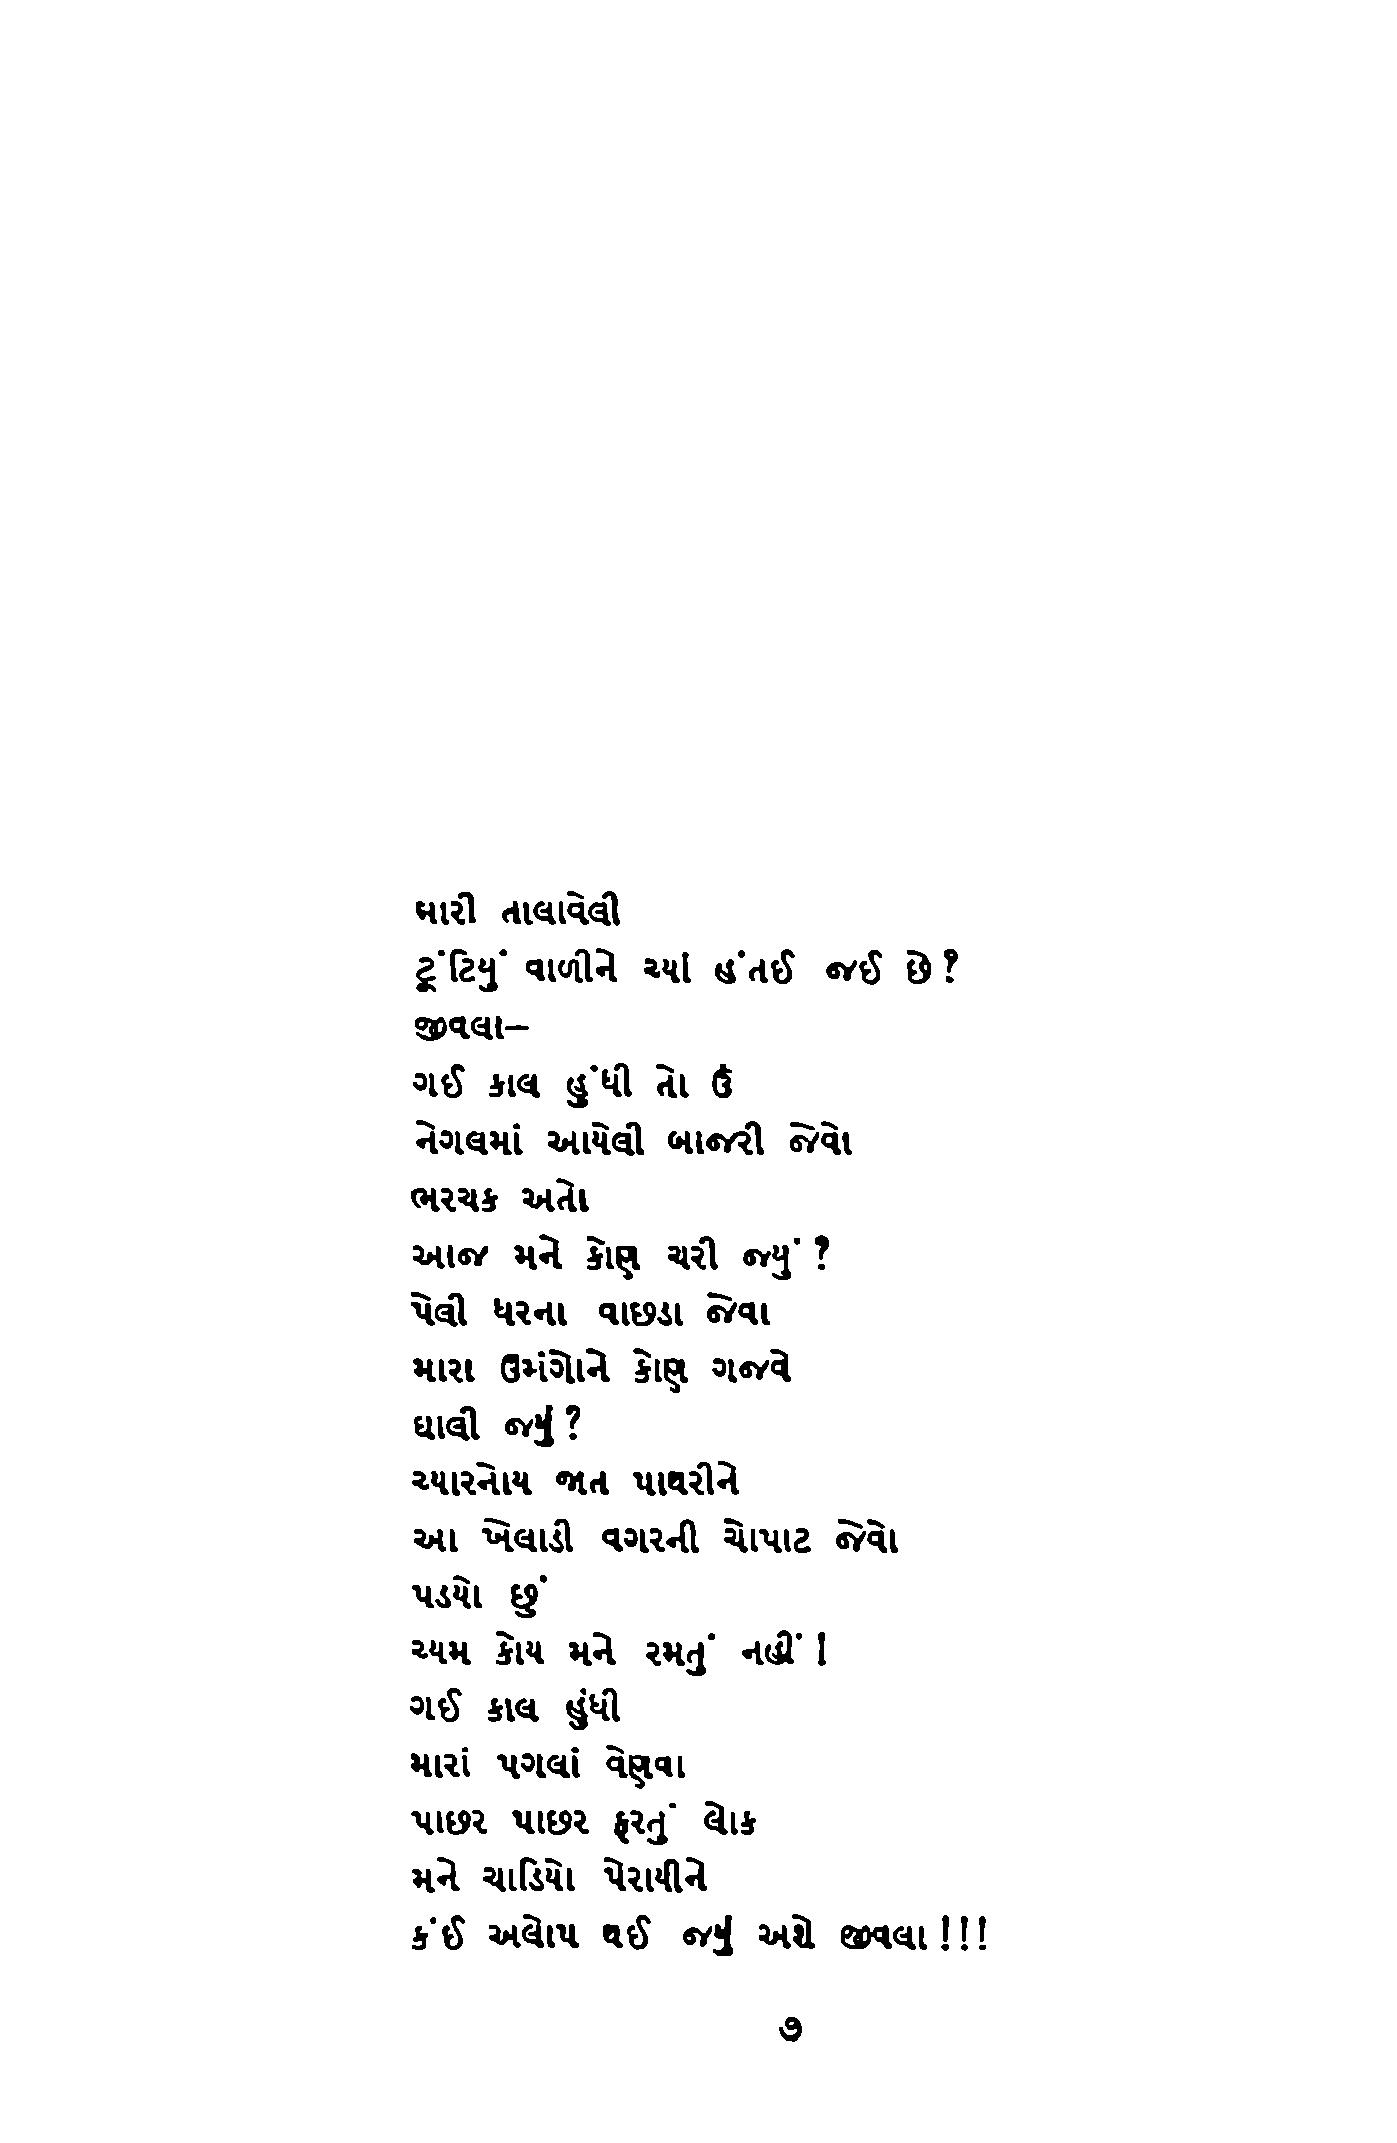 મારી તાલાવેલી
ટૂંટિયું વાળીને ચ્યાં હંતઈ જઈ છે?
જીવલા–
ગઈ કાલ હુંધી તો ઉં
નેગલમાં આયેલી બાજરી જેવો
ભરચક અતો
આજ મને કોણ ચરી જ્યું?
પેલી ધરના વાછડા જેવા
મારા ઉમંગોને કોણ ગજવે
ઘાલી જ્યું?
ચ્યારનોય જાત પાથરીને
આ ખેલાડી વગરની ચોપાટ જેવો
પડયો છું
ચ્યમ કોય મને રમતું નહીં!
ગઈ કાલ હુંધી
મારાં પગલાં વેણવા
પાછર પાછર ફરતું લોક
મને ચાડિયો પેરાયીને
કંઈ અલોપ થઈ જ્યું અશે જીવલા!!!
૭